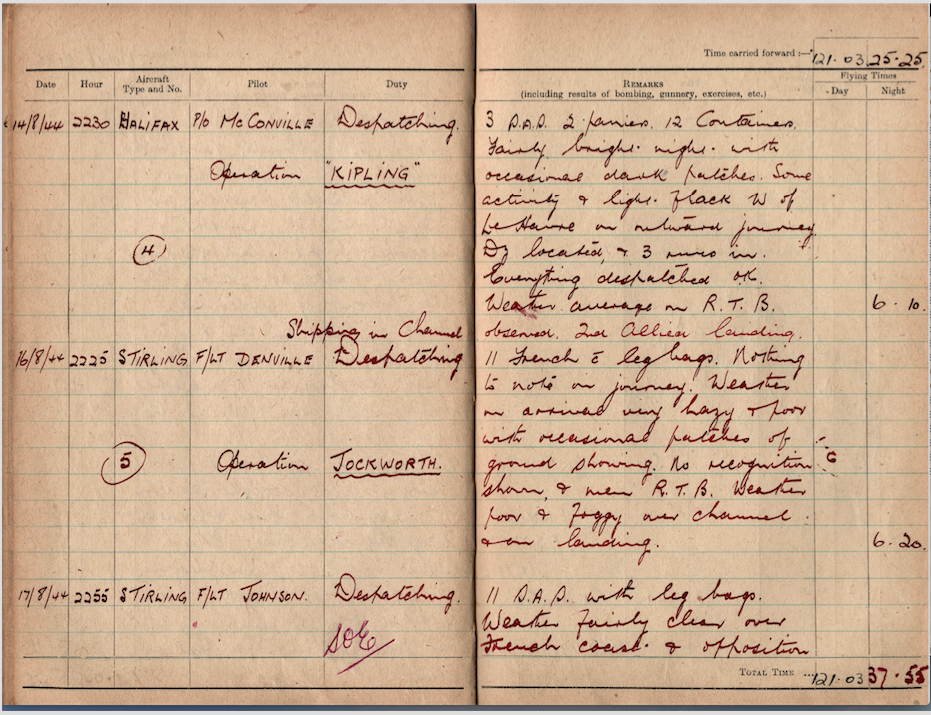 Time carried forward :— 121.03 25.25
Date Hour Aircraft Type and No. Pilot Duty
REMARKS (including results of bombing, gunnery, exercises, etc.)
Flying Times
Day Night
14/8/44 2230 HALIFAX P/O McCONVILLE Despatching.
Operation "KIPLING"
4
3 S.A.S. 2 paniers. 12 Containers.
Fairly bright night with
occasional dark patches. Some
activity & light flack W of
Le Havre on outward journey
DZ located, & 3 runs in.
Everyting despatched OK.
Weather average on R.T.B. 6.10
Shipping in Channel
observed. 2nd Allied landing.
16/8/44 2225 STIRLING F/LT DENVILLE Despatching
5
Operation JOCKWORTH.
11 French c̄ leg bags. Nothing
to note on journey. Weather
on arrival very hazy & poor
with occasional patches of
ground showing. No recognition
shown, & men R.T.B. Weather
poor & foggy over channel
& on landing. 6.20
17/8/44 2255 STIRLING F/LT JOHNSON. Despatching.
SOE
11 S.A.S. with leg bags.
Weather Fairly clear over
French coast & opposition
TOTAL TIME ... 121.03 37.55